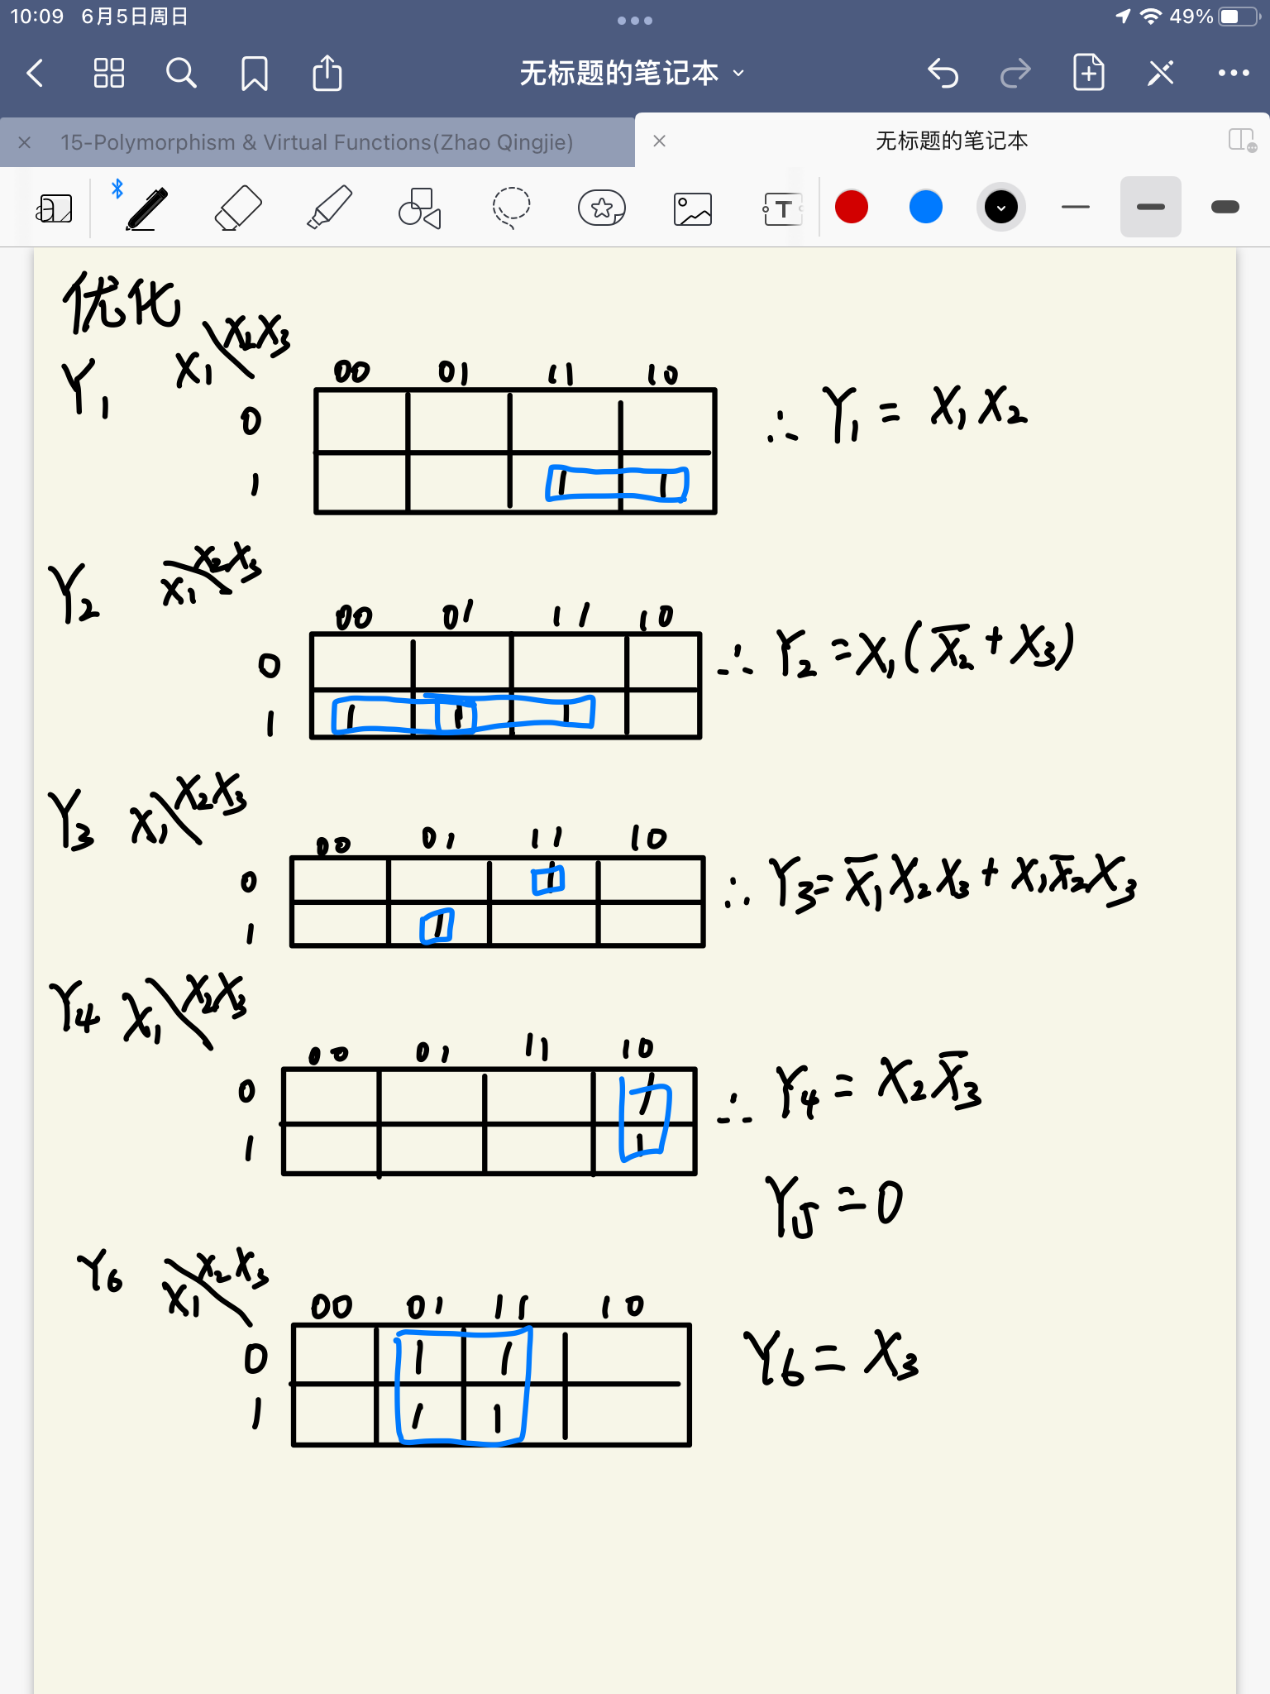 10:09 6月5日周日
49%
无标题的笔记本
15-Polymorphism & Virtual Functions(Zhao Qingjie)
无标题的笔记本
优化
Y₁ X₁ X₂X₃
00 01 11 10
0
1 1 1
∴ Y₁ = X₁X₂
Y₂ X₁ X₂X₃
00 01 11 10
0
1 1 1 1
∴ Y₂ = X₁(X̅₂ + X₃)
Y₃ X₁ X₂X₃
00 01 11 10
0 1
1 1
∴ Y₃ = X̅₁X₂X₃ + X₁X̅₂X₃
Y₄ X₁ X₂X₃
00 01 11 10
0 1
1 1
∴ Y₄ = X₂X̅₃
Y₅ = 0
Y₆ X₁ X₂X₃
00 01 11 10
0 1 1
1 1 1
Y₆ = X₃